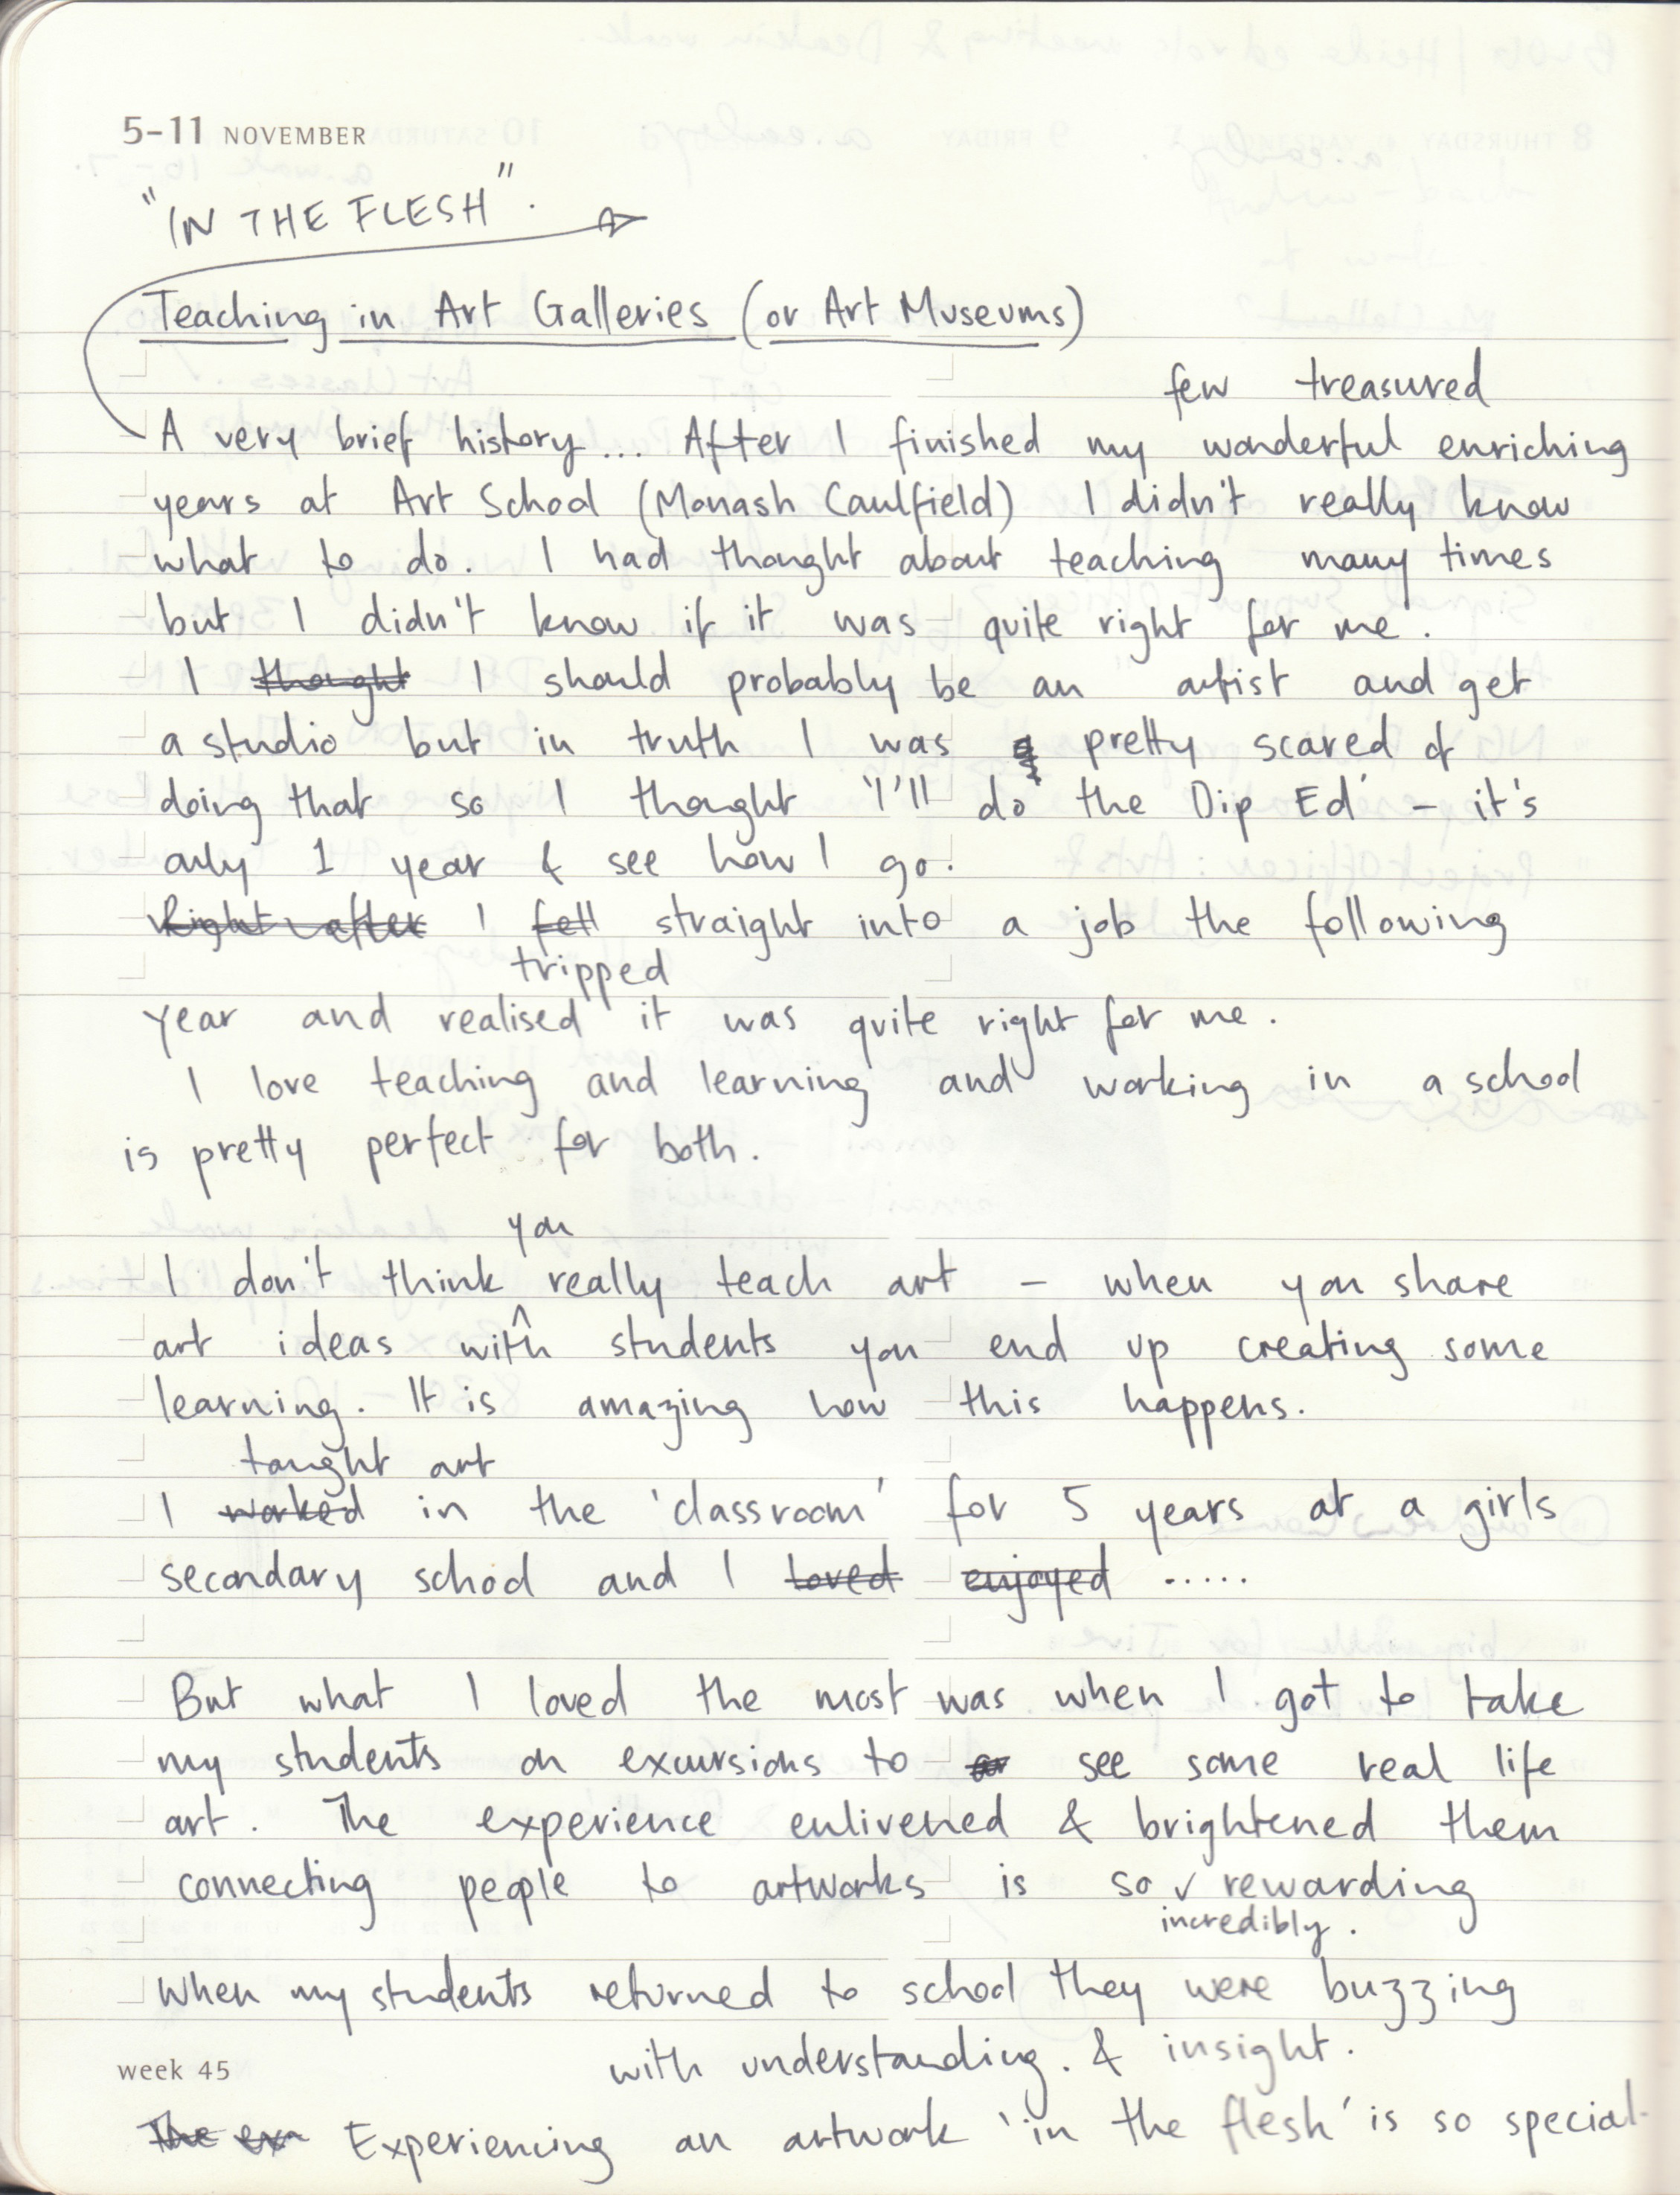 5-11 NOVEMBER
"IN THE FLESH".
Teaching in Art Galleries (or Art Museums)
few treasured
A very brief history... After I finished my wonderful enriching
years at Art School (Monash Caulfield) I didn't really know
what to do. I had thought about teaching many times
but I didn't know if it was quite right for me.
I thought I should probably be an artist and get
a studio but in truth I was pretty scared of
doing that so I thought 'I'll do the Dip Ed' - it's
only 1 year & see how I go.
Right after I fell straight into a job the following
tripped
year and realised it was quite right for me.
I love teaching and learning and working in a school
is pretty perfect for both.
you
I don't think really teach art - when you share
art ideas with students you end up creating some
learning. It is amazing how this happens.
taught art
I worked in the 'classroom' for 5 years at a girls
secondary school and I loved enjoyed .....
But what I loved the most was when I got to take
my students on excursions to see some real life
art. The experience enlivened & brightened them
connecting people to artworks is so rewarding
incredibly.
When my students returned to school they were buzzing
with understanding. & insight.
week 45
The ex Experiencing an artwork 'in the flesh' is so special.